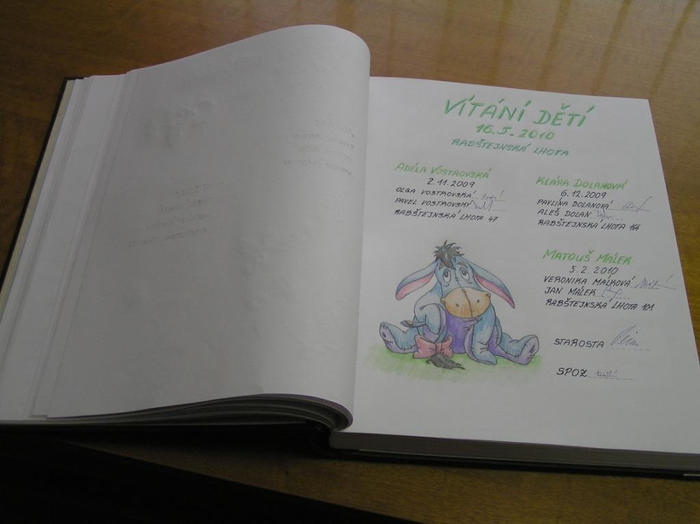 VÍTÁNÍ DĚTÍ
16.5.2010
RABŠTEJNSKÁ LHOTA
ADÉLA VOSTROVSKÁ
2.11.2009
OLGA VOSTROVSKÁ
PAVEL VOSTROVSKÝ
RABŠTEJNSKÁ LHOTA 47
KLÁRA DOLANOVÁ
6.12.2009
PAVLÍNA DOLANOVÁ
ALEŠ DOLAN
RABŠTEJNSKÁ LHOTA 164
MATOUŠ MÁLEK
5.2.2010
VERONIKA MÁLKOVÁ
JAN MÁLEK
RABŠTEJNSKÁ LHOTA 101
STAROSTA
SPOZ